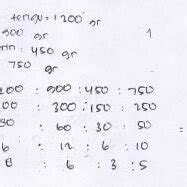 = 1200 gr
900 gr 1
450 gr
750 gr
: 900 : 450 : 750
: 300 : 150 : 250
: 60 : 30 : 50 =
: 12 : 6 : 10
8 : 6 : 3 : 5